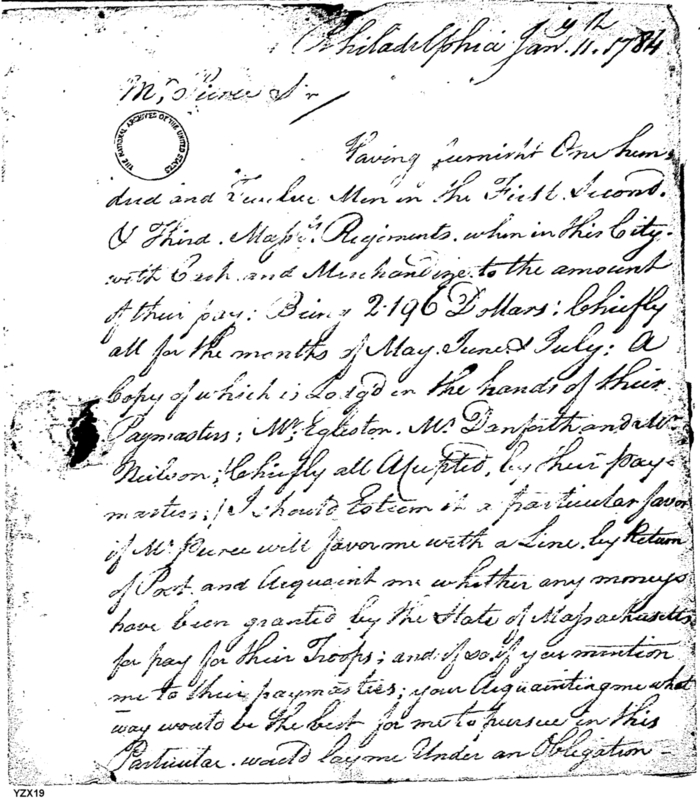 Philadelphia Jany. 11th. 1784
Mr. Pierce Sr
THE NATIONAL ARCHIVES OF THE UNITED STATES
Having furnisht One hun=
dred and Twelve Men in the First. Second.
& Third. Massts. Regiments. when in this City.
with Cash and Merchandize. to the amount
of their pay: Being 2.196 Dollars: Chiefly
all for the months of May. June & July: A
Copy of which is Lodg'd in the hands of their
Paymasters; Mr. Egleston. Mr. Danforth and Mr.
Neilson; Chiefly all Accepted, by their pay=
masters; I should Esteem it a particular favor
if Mr. Pierce will favor me with a Line. by Return
of Post. and Acquaint me whether any moneys
have been granted by the State of Massachusetts
for pay for their Troops; and if so. if you mention
me to their paymasters; your Acquainting me what
way would be the best for me to pursue in this
Particular. would lay me Under an Obligation —
YZX19